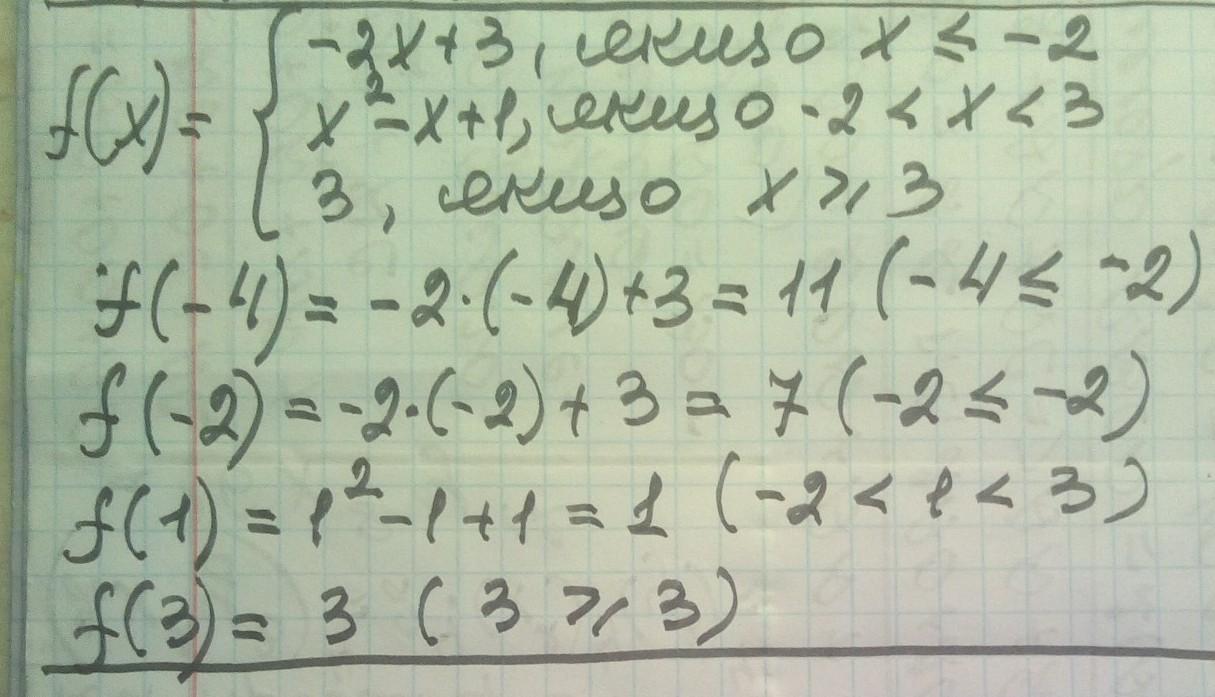 -2x+3, якщо x ≤ -2
f(x)= { x²-x+1, якщо -2 < x < 3
3, якщо x ≥ 3
f(-4) = -2·(-4)+3 = 11 (-4 ≤ -2)
f(-2) = -2·(-2)+3 = 7 (-2 ≤ -2)
f(1) = 1²-1+1 = 1 (-2 < 1 < 3)
f(3) = 3 (3 ≥ 3)